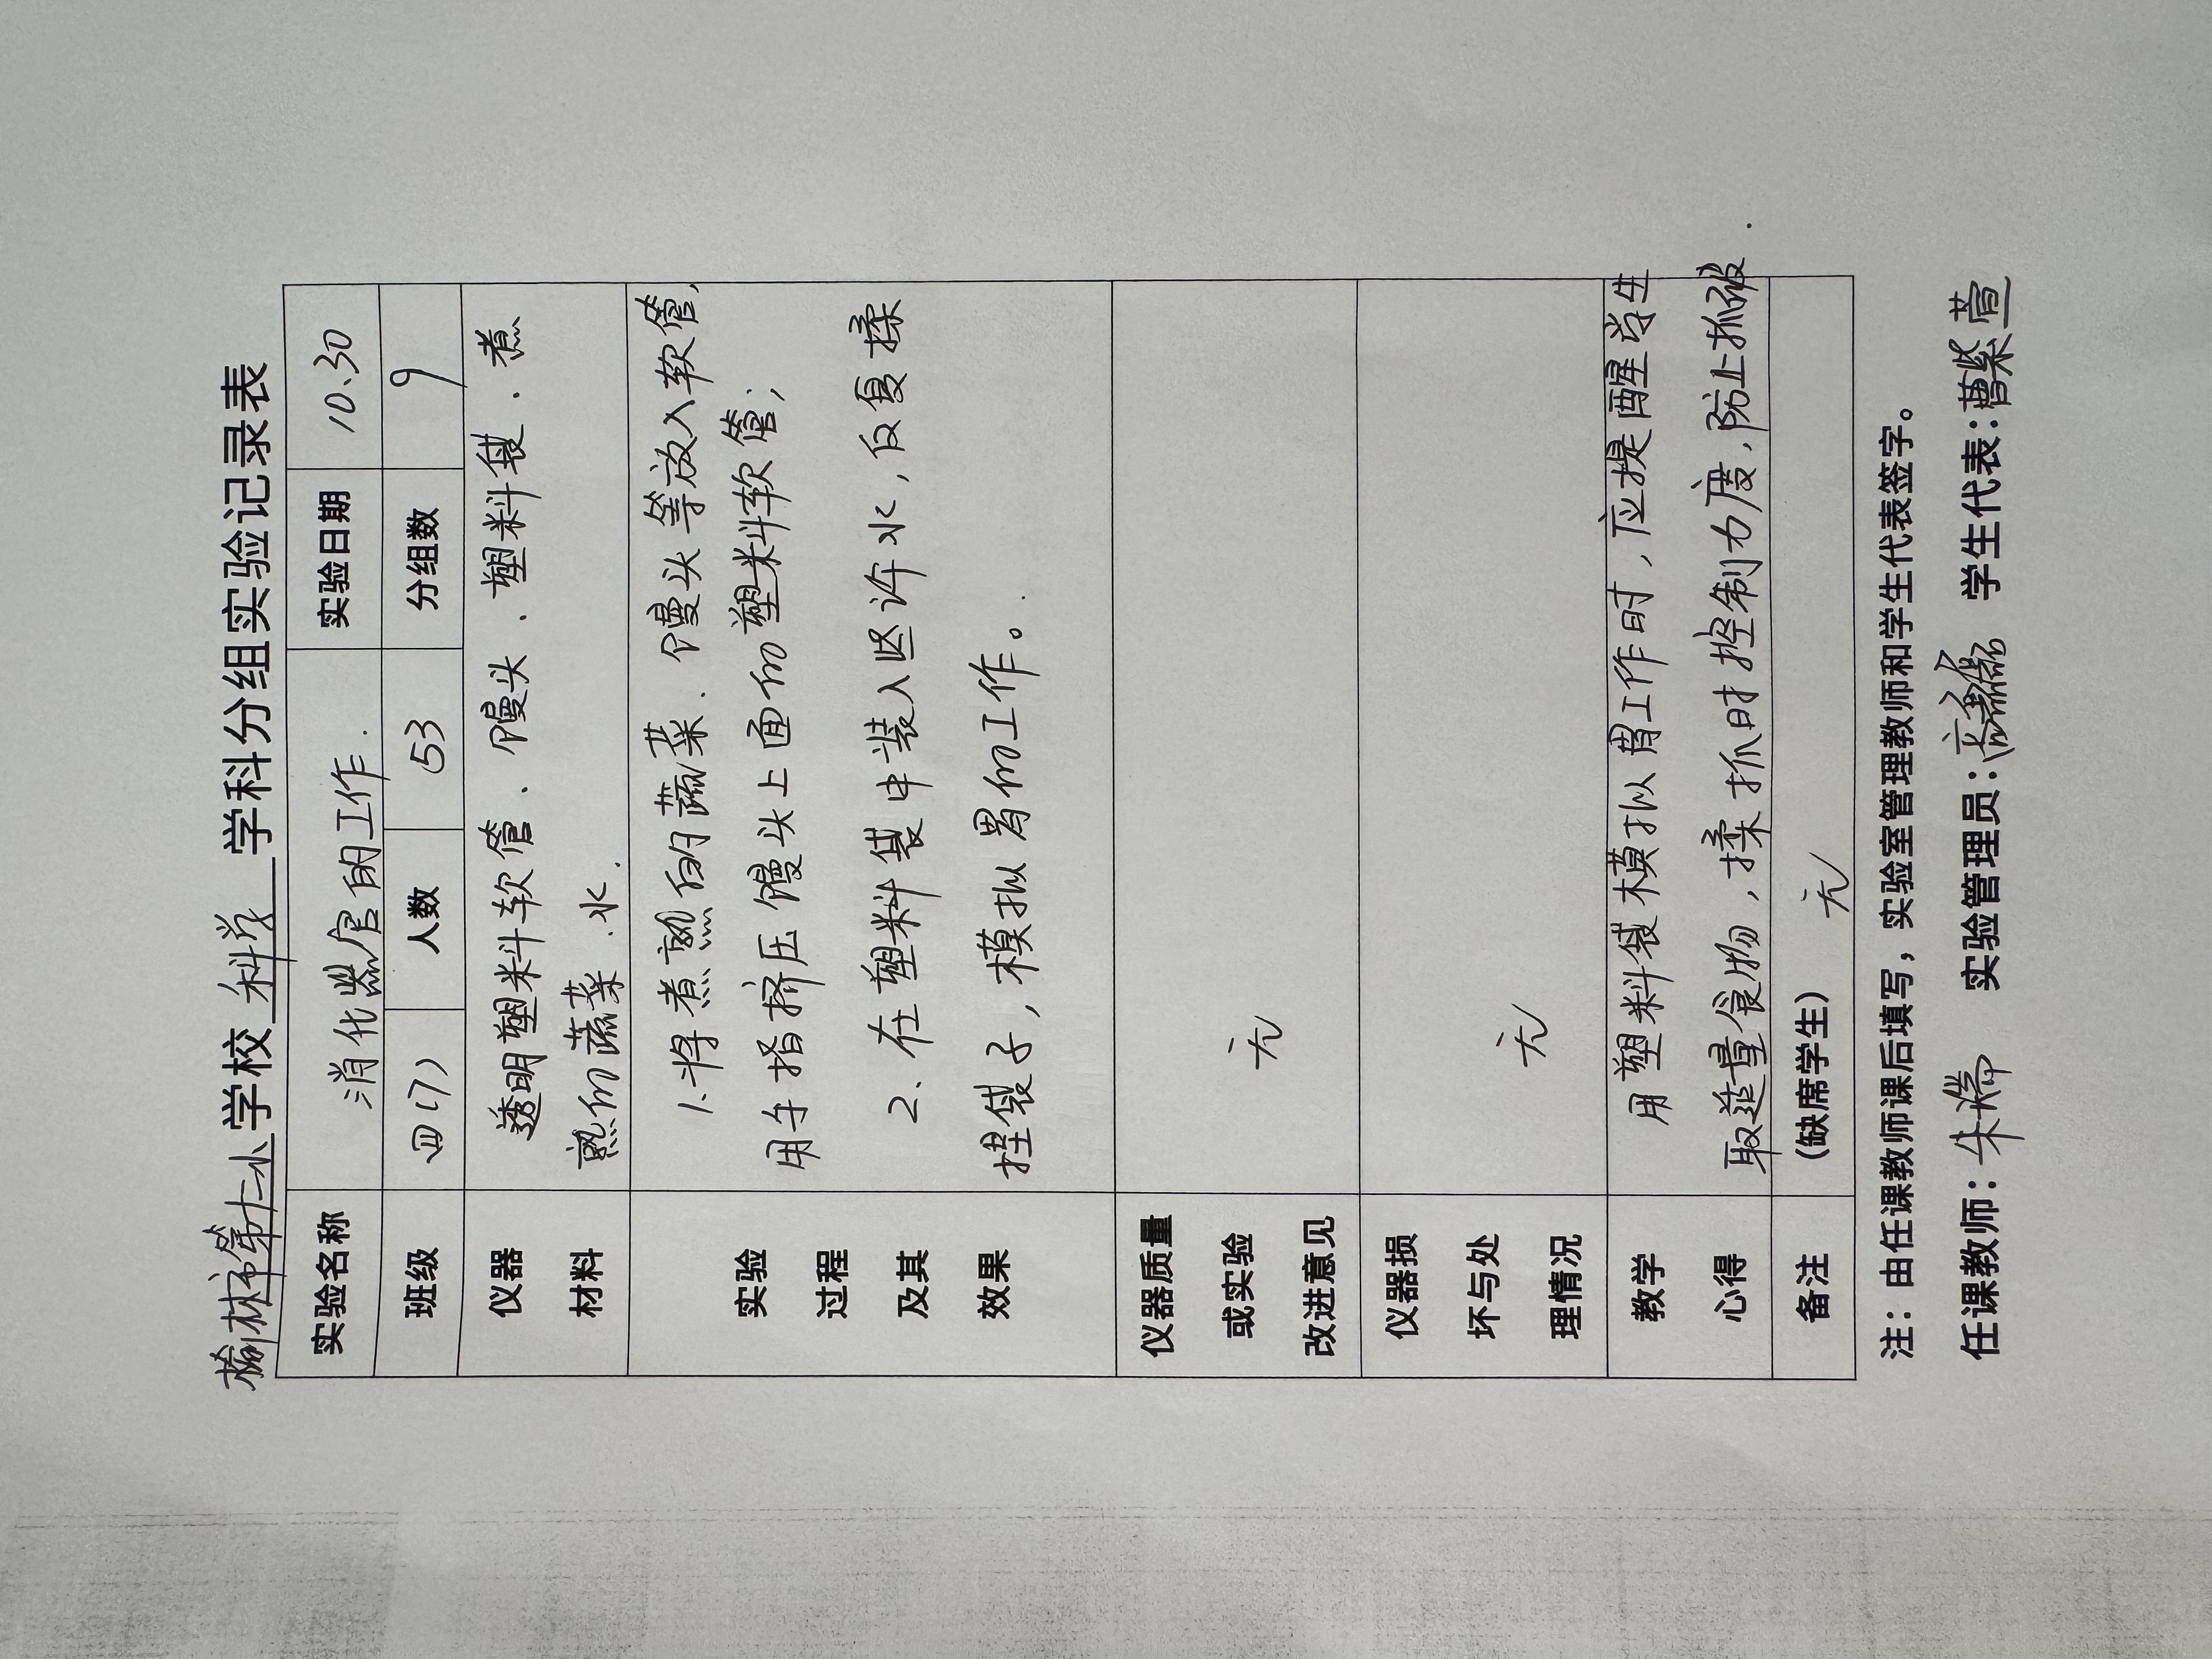 榆林市第十二小学校 科学 学科分组实验记录表
实验名称 消化器官的工作. 实验日期 10.30
班级 四(7) 人数 53 分组数 9
仪器 透明塑料软管、馒头、塑料袋、煮
材料 熟的蔬菜.水.
1.将煮熟的蔬菜、馒头等放入软管,
实验 用手指挤压馒头上面的塑料软管;
过程
及其 2.在塑料袋中装入些许水,反复揉
效果 捏袋子,模拟胃的工作。
仪器质量
或实验 无
改进意见
仪器损
坏与处 无
理情况
教学 用塑料袋模拟胃工作时,应提醒学生
心得 取适量食物,揉抓时控制力度,防止抓破.
备注 (缺席学生) 无
注：由任课教师课后填写，实验室管理教师和学生代表签字。
任课教师: 朱 实验管理员: 学生代表:曹紫萱